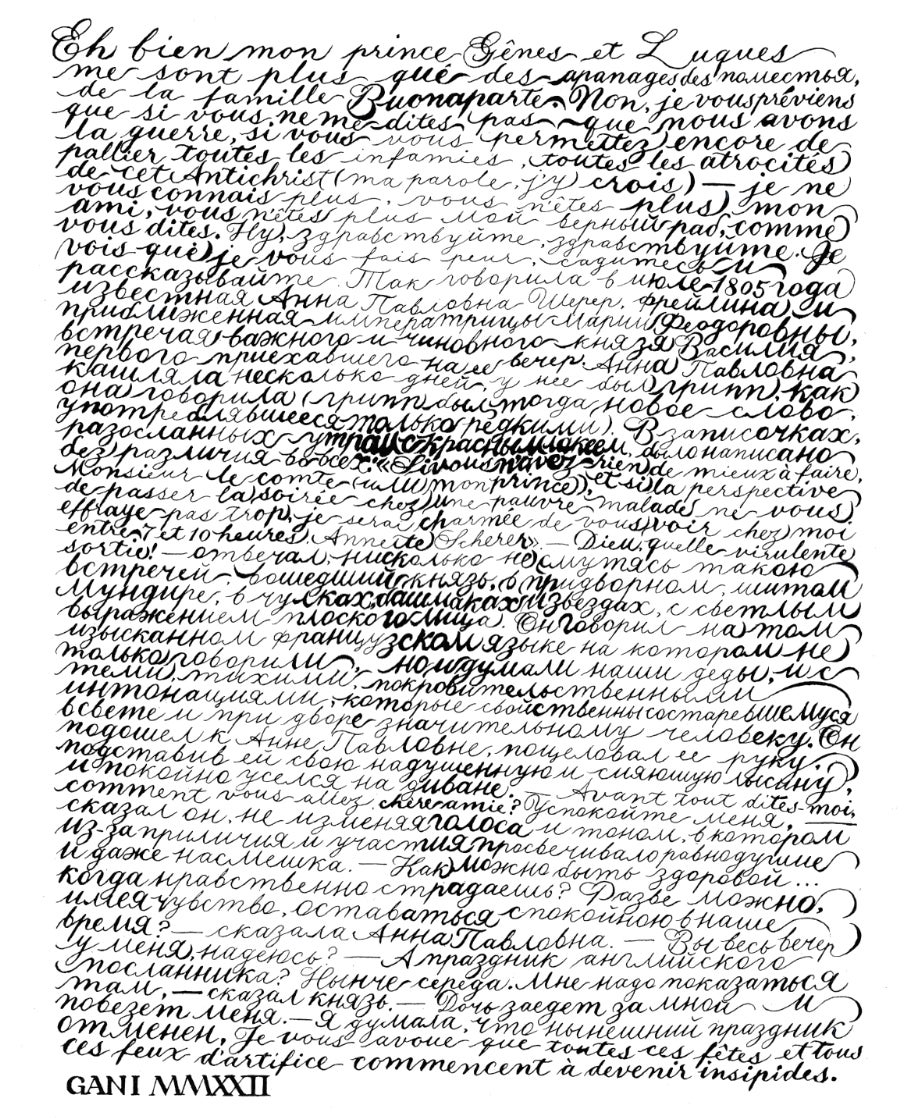 Eh bien mon prince Gênes et Luques
me sont plus que des apanages des поместья,
de la famille Buonaparte Non, je vous préviens
que si vous ne me dites pas que nous avons
la guerre, si vous vous permettez encore de
pallier toutes les infamies, toutes les atrocités
de cet Antichrist (ma parole, j'y crois) — je ne
vous connais plus, vous n'êtes plus mon
ami, vous n'êtes plus мой верный раб, comme
vous dites. Ну, здравствуйте, здравствуйте. Je
vois que je vous fais peur, садитесь и
рассказывайте. Так говорила в июле 1805 года
известная Анна Павловна Шерер, фрейлина и
приближенная императрицы Марии Феодоровны,
встречая важного и чиновного князя Василия,
первого приехавшего на ее вечер. Анна Павловна
кашляла несколько дней, у нее был грипп, как
она говорила (грипп был тогда новое слово,
употреблявшееся только редкими). В записочках,
разосланных утром с красным лакеем, было написано
без различия во всех: «Si vous n'avez rien de mieux à faire,
Monsieur le comte (или mon prince), et si la perspective
de passer la soirée chez une pauvre malade ne vous
effraye pas trop, je serai charmée de vous voir chez moi
entre 7 et 10 heures. Annette Scherer» — Dieu, quelle virulente
sortie! — отвечал, нисколько не смутясь такою
встречей, вошедший князь, в придворном, шитом
мундире, в чулках, башмаках и звездах, с светлым
выражением плоского лица. Он говорил на том
изысканном французском языке на котором не
только говорили, но и думали наши деды, и с
теми, тихими, покровительственными
интонациями, которые свойственны состаревшемуся
в свете и при дворе значительному человеку. Он
подошел к Анне Павловне, поцеловал ее руку,
подставив ей свою надушенную и сияющую лысину,
и покойно уселся на диване. — Avant tout dites-moi,
comment vous allez, chère amie? Успокойте меня, —
сказал он, не изменяя голоса и тоном, в котором
из-за приличия и участия просвечивало равнодушие
и даже насмешка. — Как можно быть здоровой...
когда нравственно страдаешь? Разве можно,
имея чувство, оставаться спокойною в наше
время? — сказала Анна Павловна. — Вы весь вечер
у меня, надеюсь? — А праздник английского
посланника? Нынче середа. Мне надо показаться
там, — сказал князь. — Дочь заедет за мной и
повезет меня. — Я думала, что нынешний праздник
отменен, Je vous avoue que toutes ces fêtes et tous
ces feux d'artifice commencent à devenir insipides.
GANI MMXXII